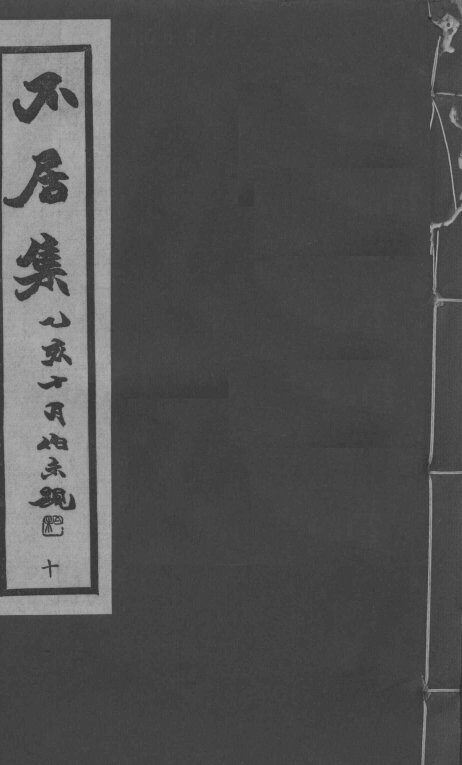 不居集
乙亥十月伯未題
十